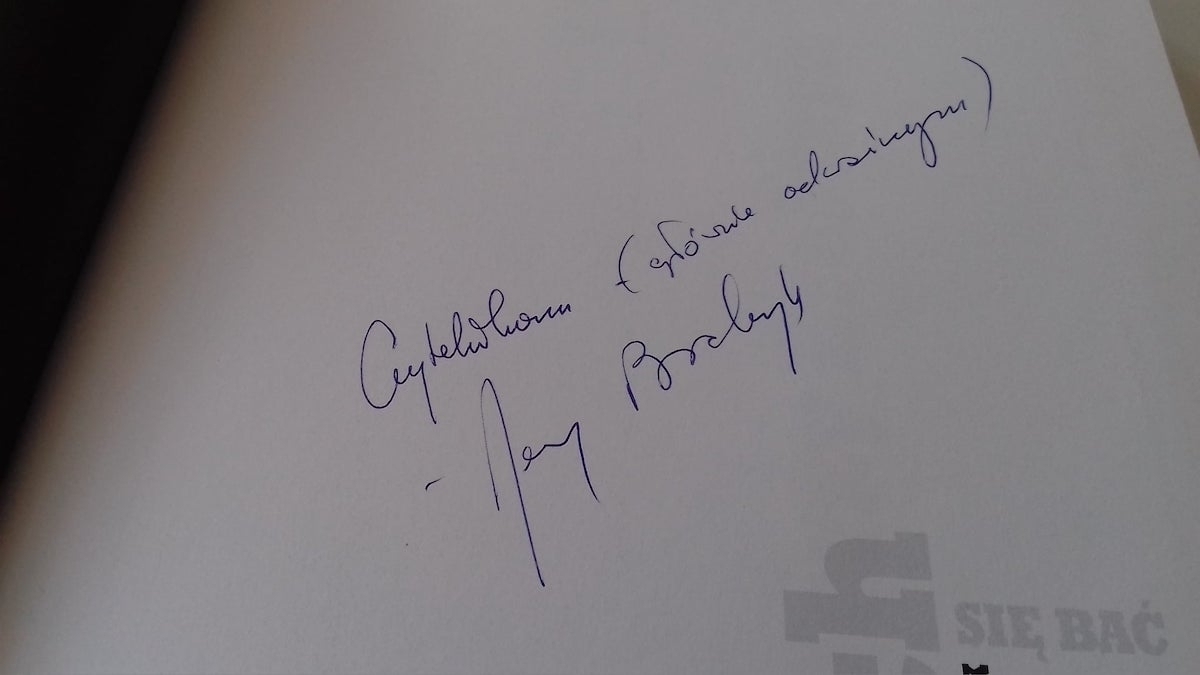 Czytelnikom (głównie odważnym)
- Jerzy Bralczyk
SIĘ BAĆ